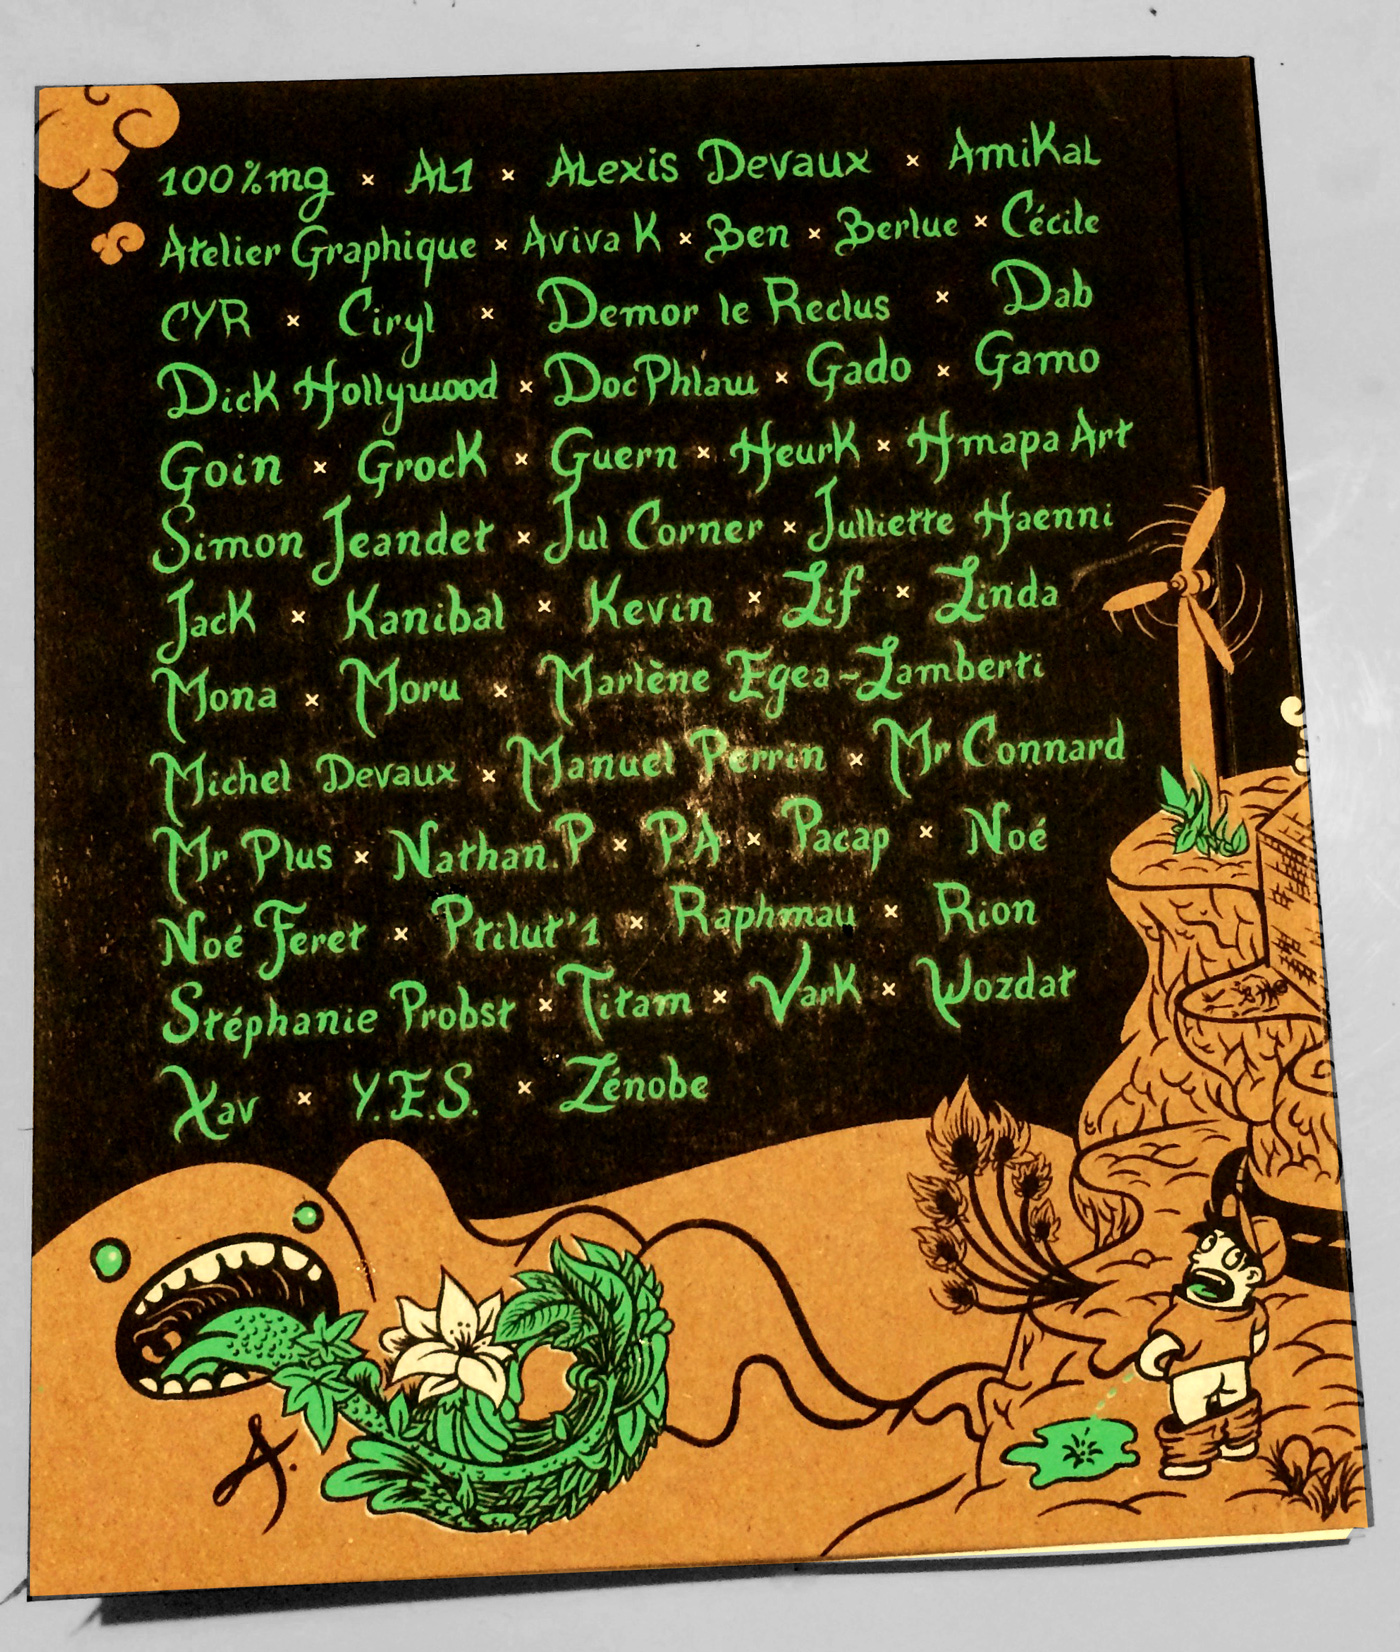 100%mg × AL1 × ALexis Devaux × AmiKaL
Atelier Graphique × Aviva K × Ben × Berlue × Cécile
CYR × Ciryl × Demor le Reclus × Dab
Dick Hollywood × DocPhlaw × Gado × Gamo
Goin × Grock × Guern × Heurk × Hmapa Art
Simon Jeandet × Jul Corner × Julliette Haenni
Jack × Kanibal × Kevin × Lif × Linda
Mona × Moru × Marlène Egea-Lamberti
Michel Devaux × Manuel Perrin × Mr Connard
Mr Plus × Nathan.P × P.A × Pacap × Noé
Noé Feret × Ptilut'1 × Raphmau × Rion
Stéphanie Probst × Titam × Vark × Wozdat
Xav × Y.E.S. × Zénobe
A.